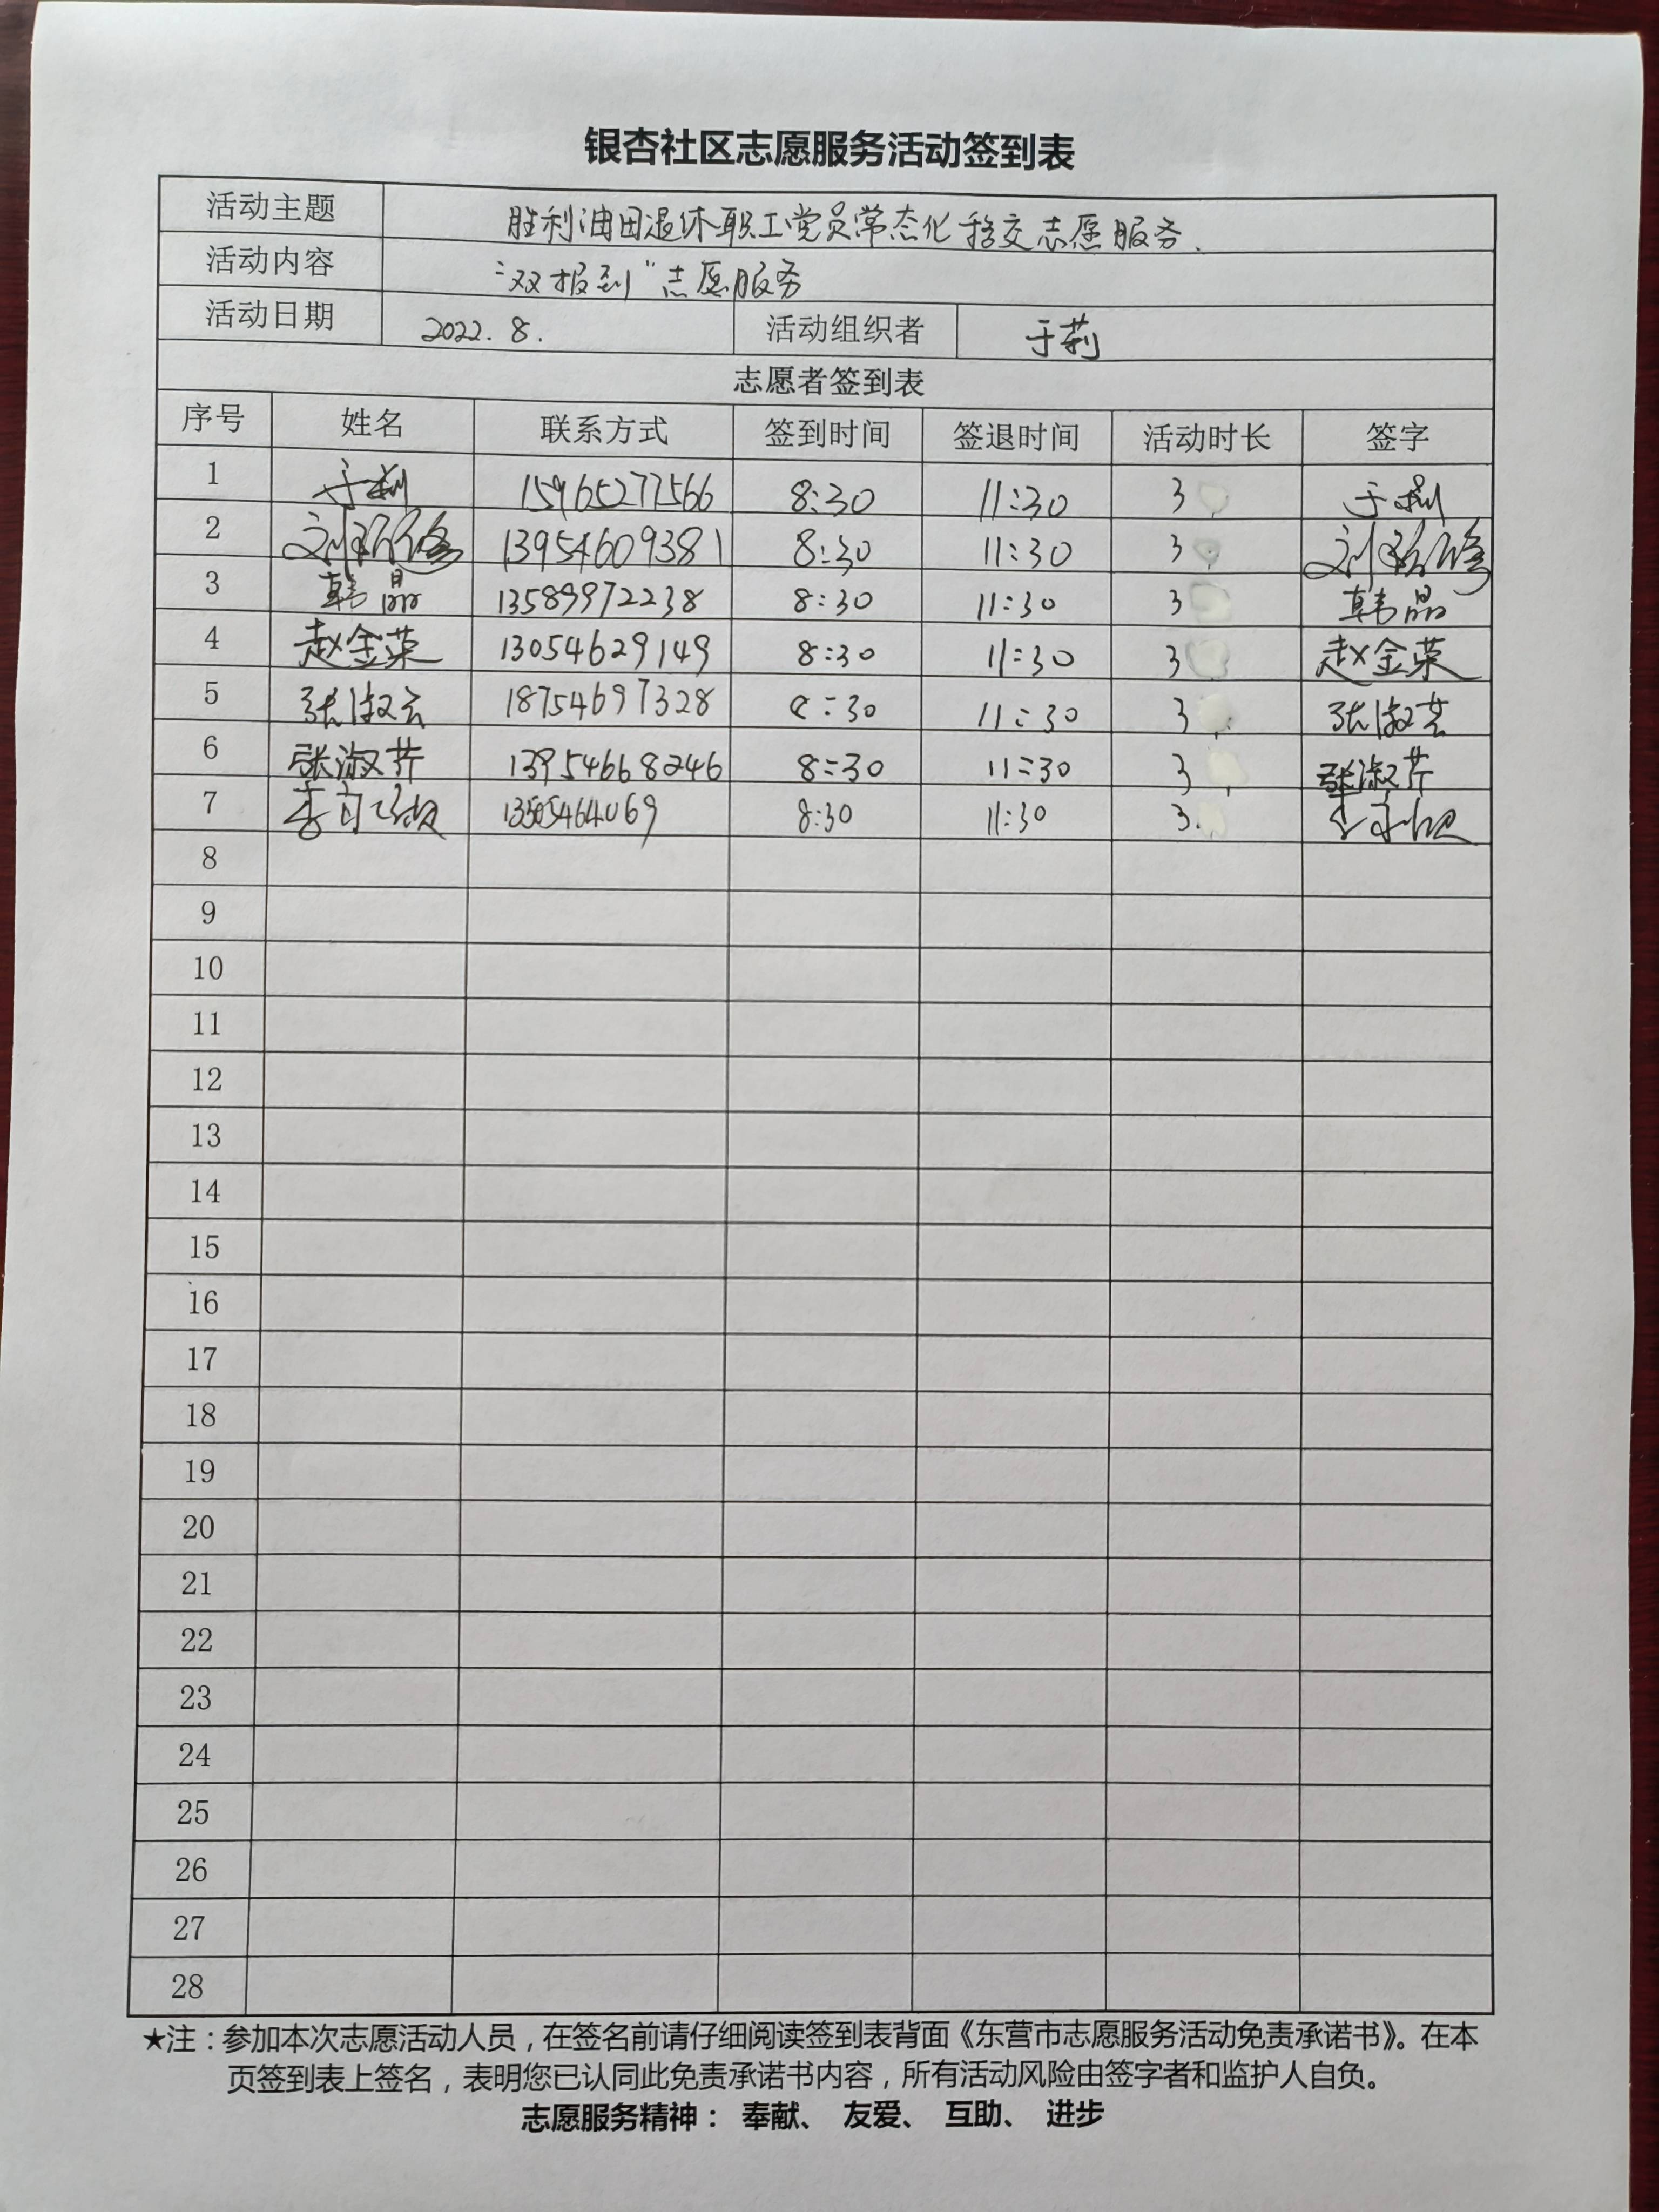 银杏社区志愿服务活动签到表
活动主题 胜利油田退休职工党员常态化移交志愿服务.
活动内容 "双报到"志愿服务
活动日期 2022.8. 活动组织者 于莉
志愿者签到表
序号 姓名 联系方式 签到时间 签退时间 活动时长 签字
1 于莉 15965277566 8:30 11:30 3 于莉
2 刘 13954609381 8:30 11:30 3 刘
3 韩晶 13589972238 8:30 11:30 3 韩晶
4 赵金荣 13054629149 8:30 11:30 3 赵金荣
5 张淑云 18754697328 8:30 11:30 3 张淑芸
6 张淑芹 13954668246 8:30 11:30 3 张淑芹
7 李 13505464069 8:30 11:30 3. 李
8
9
10
11
12
13
14
15
16
17
18
19
20
21
22
23
24
25
26
27
28
★注：参加本次志愿活动人员，在签名前请仔细阅读签到表背面《东营市志愿服务活动免责承诺书》。在本
页签到表上签名，表明您已认同此免责承诺书内容，所有活动风险由签字者和监护人自负。
志愿服务精神： 奉献、 友爱、 互助、 进步